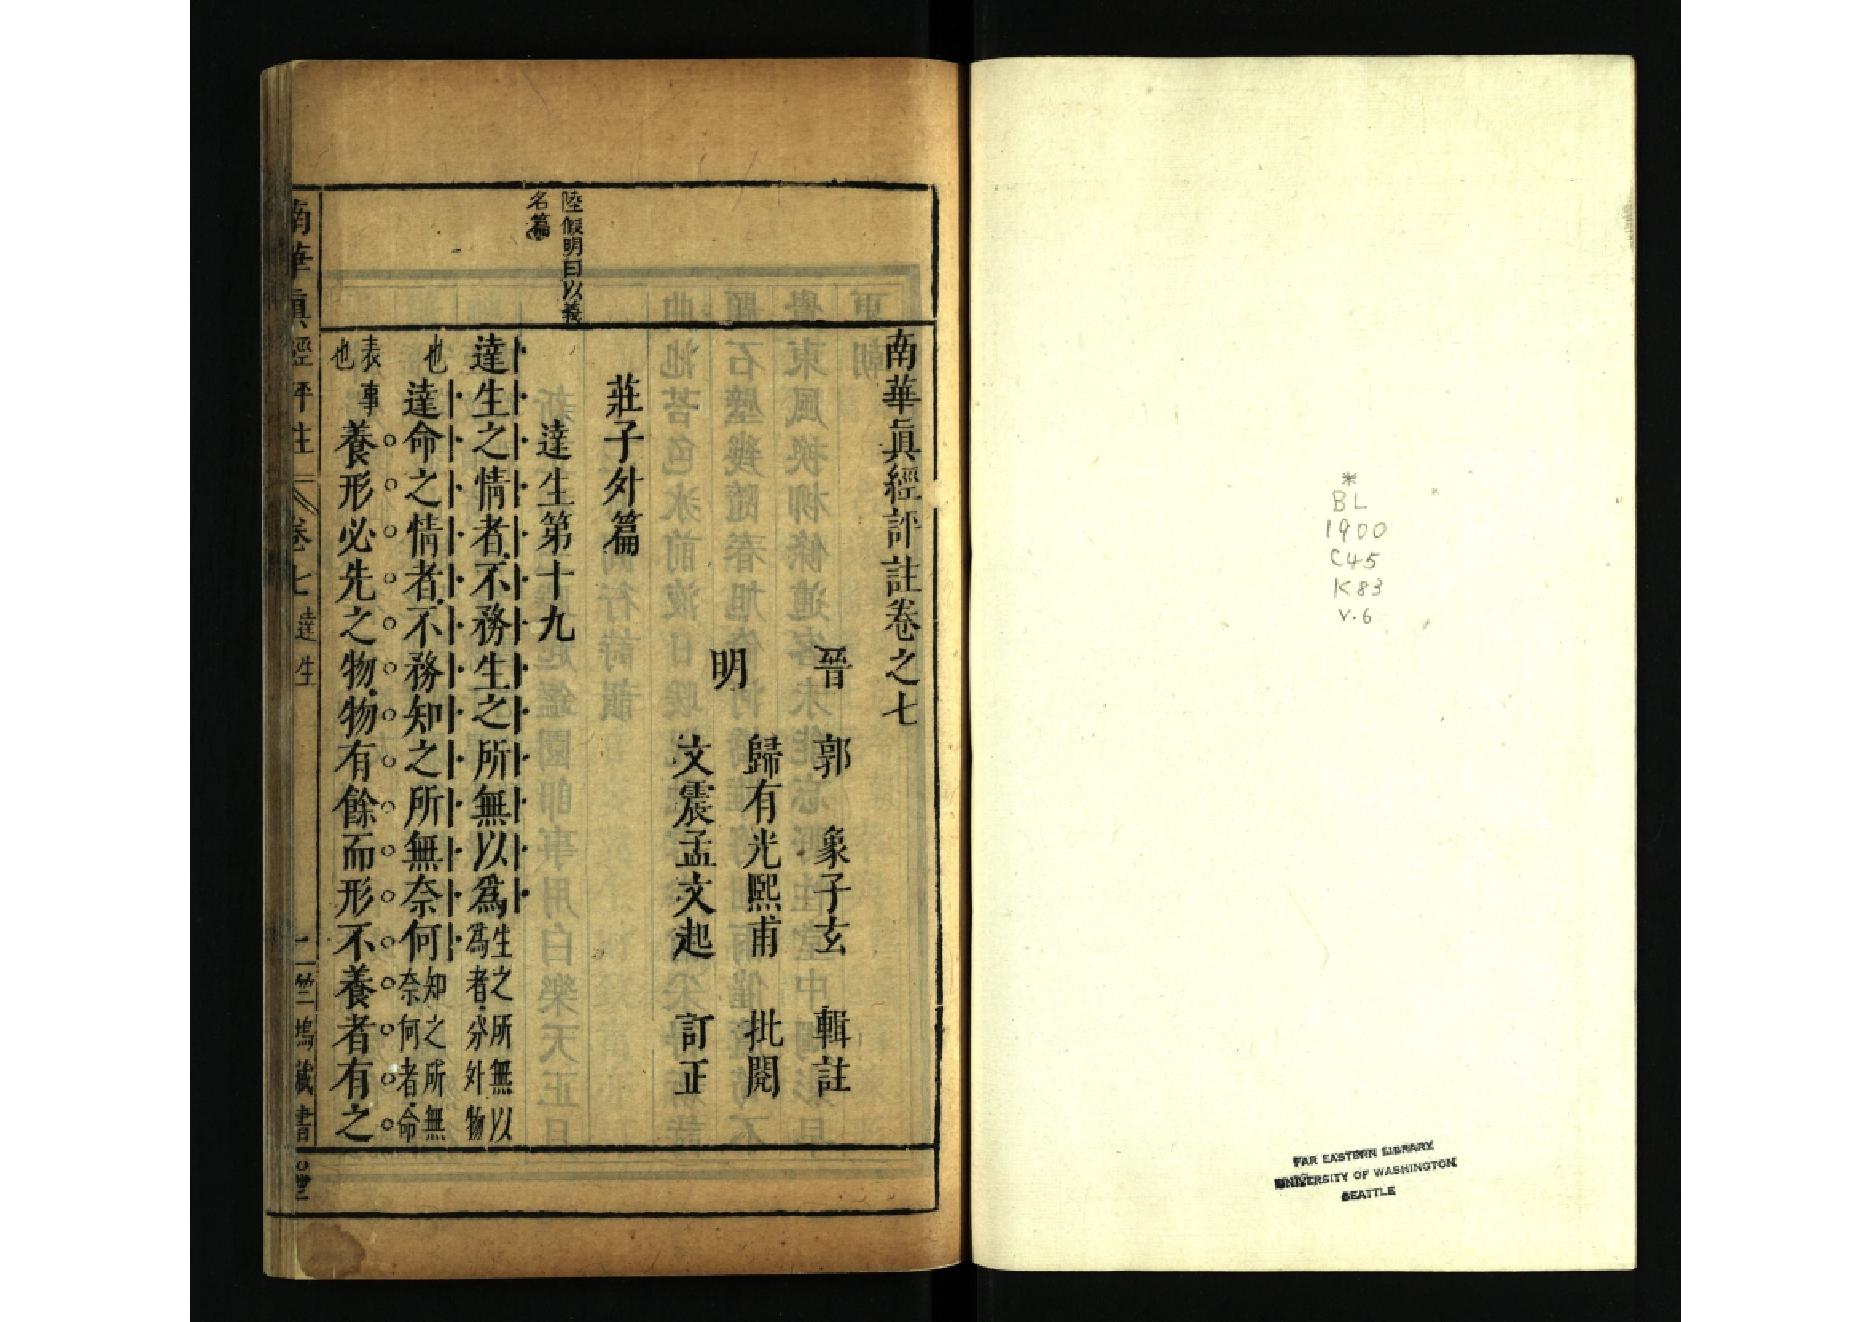 *
BL
1900
C45
K83
v.6
FAR EASTERN LIBRARY
UNIVERSITY OF WASHINGTON
SEATTLE
南華眞經評註卷之七
晉 郭 象子玄 輯註
明
歸有光熙甫 批閱
文震孟文起 訂正
莊子外篇
達生第十九
陸假明曰以義
名篇
達生之情者不務生之所無以爲生之所無以
爲者分外物
也達命之情者不務知之所無奈何知之所無
奈何者命
表事
也養形必先之物物有餘而形不養者有之
南華眞經評註
卷七 達生
竺塢藏書